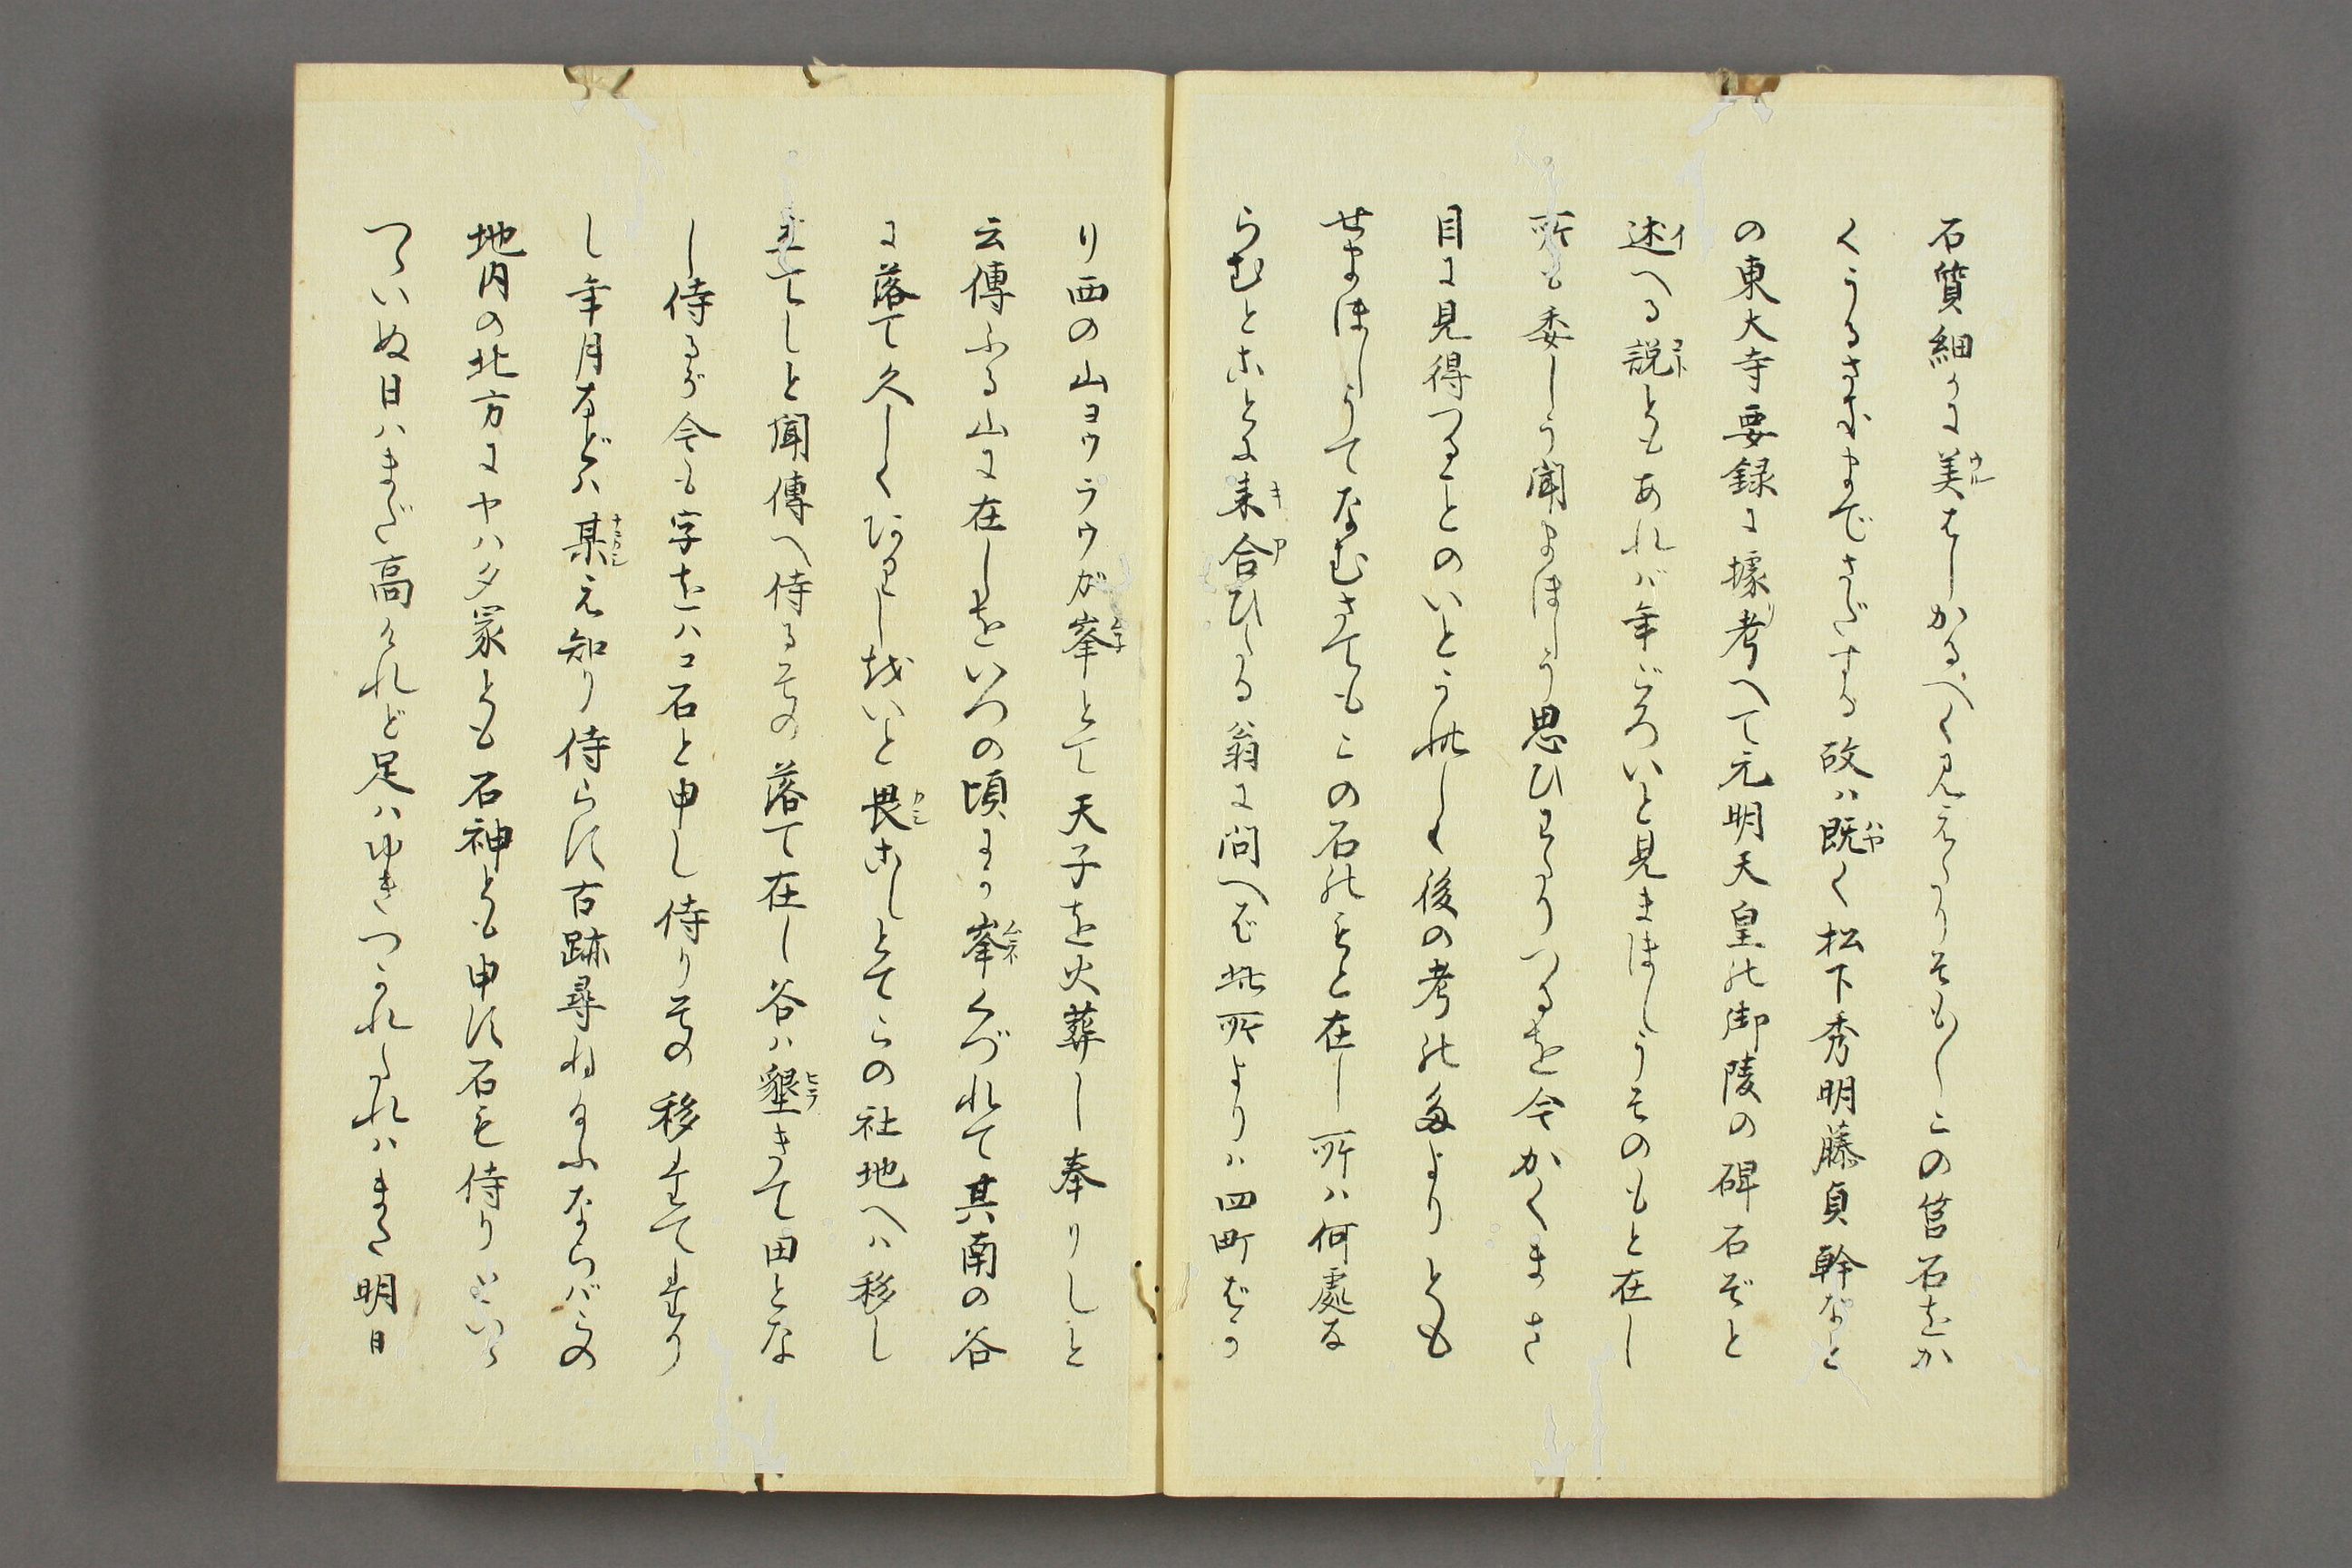 石質細かに美はしかるべく見えたりそも〳〵この筥石をか
くうるさきまでさだする故は既く松下秀明藤貞幹など
の東大寺要録に據考へて元明天皇の御陵の碑石ぞと
述へる説ともあれば年ごろいと見まほしうそのもと在し
所も委しう聞まほしう思ひわたりつるを今かくまさ
目に見得つることのいとうれしく後の考のためよりとも
せまほしうてなむさてもこの石のもと在し所は何處な
らむとことに来合ひたる翁に問へば此所よりは四町ばか
り西の山ヨウラウが峯とて天子を火葬し奉りしと
云傳ふる山に在しをいつの頃にか峯くづれて其南の谷
に落て久しくありし故いと畏こしとてこの社地へは移し
立てしと聞傳へ侍るその落て在し谷は墾きて田とな
し侍るが今も字をハコ石と申し侍りその移立て
し年月などは某え知り侍らず古跡尋ね給ふならばこの
地内の北方にヤハタ冢とも石神とも申す石も侍りといら
つていぬ日はまだ高けれど足はゆきつかれたればまた明日